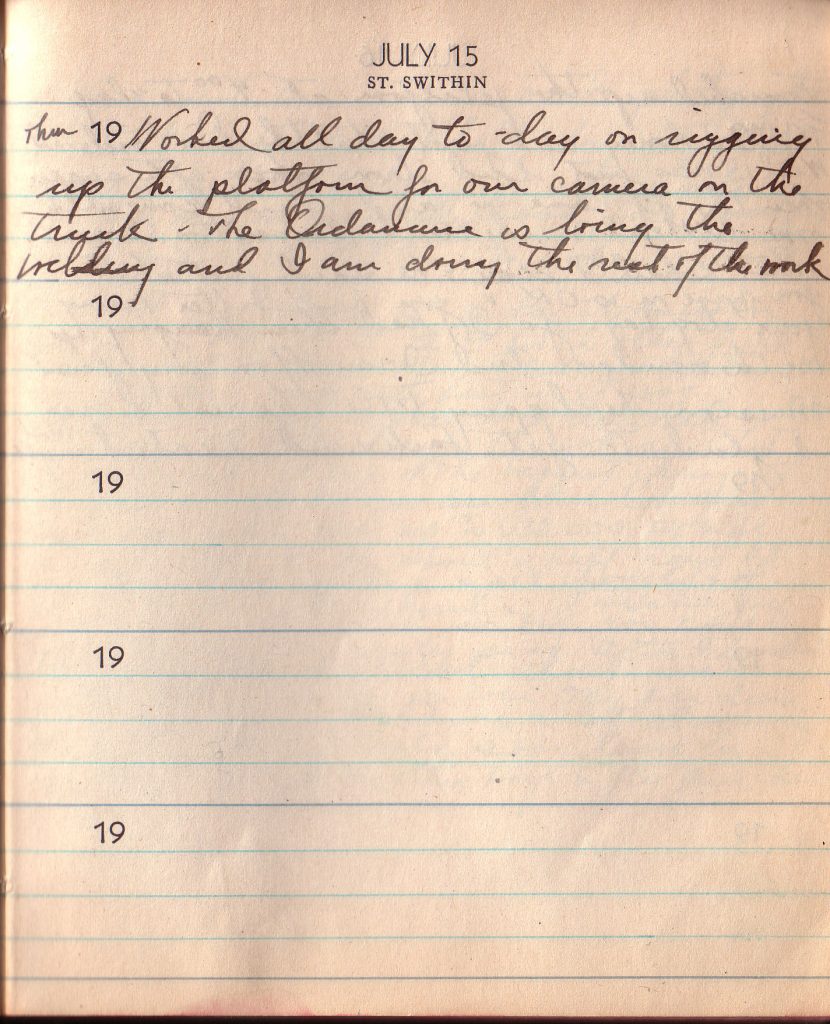 JULY 15
ST. SWITHIN
Thur 19 Worked all day to-day on rigging
up the platform for our camera on the
truck - The Ordanance is doing the
welding and I am doing the rest of the work
19
19
19
19